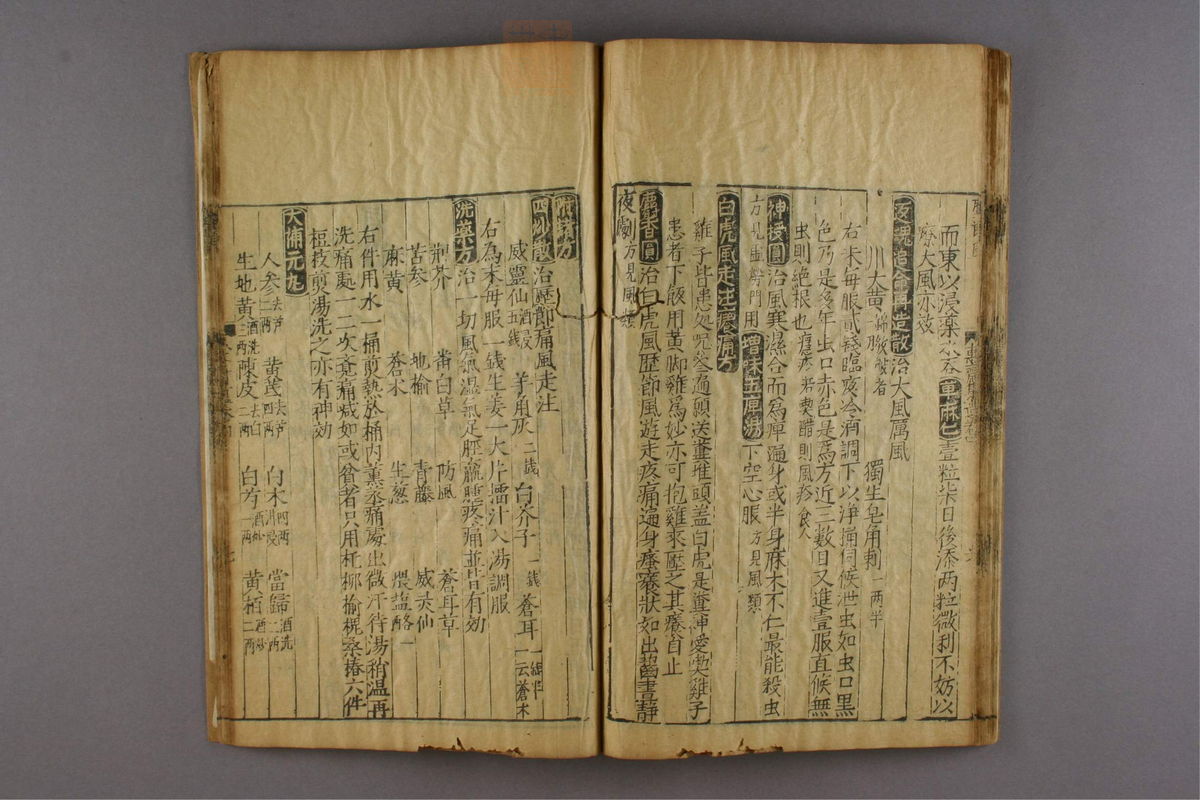 而東以浸藥水吞萆麻仁壹粒柒日後添两粒微利不妨以
療大風亦效
再造散治大風厲風
川大黃 獨生皂角刺一两半
右末每服貳錢臨夜冷酒調下以淨桶伺候泄虫如虫口黑
色乃是多年虫口赤色是為方近三數日又進壹服直候無
虫則絕根也
神授圓治風寒濕合而為痹遍身或半身麻木不仁最能殺虫
方見 門用增味五痹湯下空心服方見風類
白虎風走注癢痛方
雞子皆患処呪叁遍願送糞堆頭盖白虎是糞神愛喫雞子
患者下飯用黃脚雞為妙亦可抱雞來壓之其癢自止
麝香圓治白虎風歷節風遊走疼痛遍身癢癢狀如出齧晝靜
夜劇方見風類
附諸方
四妙散治歷節痛風走注
威靈仙酒浸五錢 羊角灰二錢 白芥子一錢 蒼耳一錢半一云蒼术
右為末每服一錢生姜一大片擂汁入湯調服
洗藥方治一切風氣湿氣足脛 腫疼痛並皆有効
荆芥 番白草 防風 蒼耳草
苦参 地榆 青藤 威灵仙
麻黃 蒼术 生葱 隈盐酪一
右件用水一桶剪熱於桶内薰蒸痛處出微汗待湯稍温再
洗痛處一二次竟痛减如或貧者只用杔柳榆槐桑椿六件
短枝剪湯洗之亦有神効
大補元丸
人参去芦二两 黃芪去芦四两 白术四两 當歸酒洗二两
生地黃酒洗三两 陳皮去白二两 白芍酒炒一两 黃栢酒炒二两